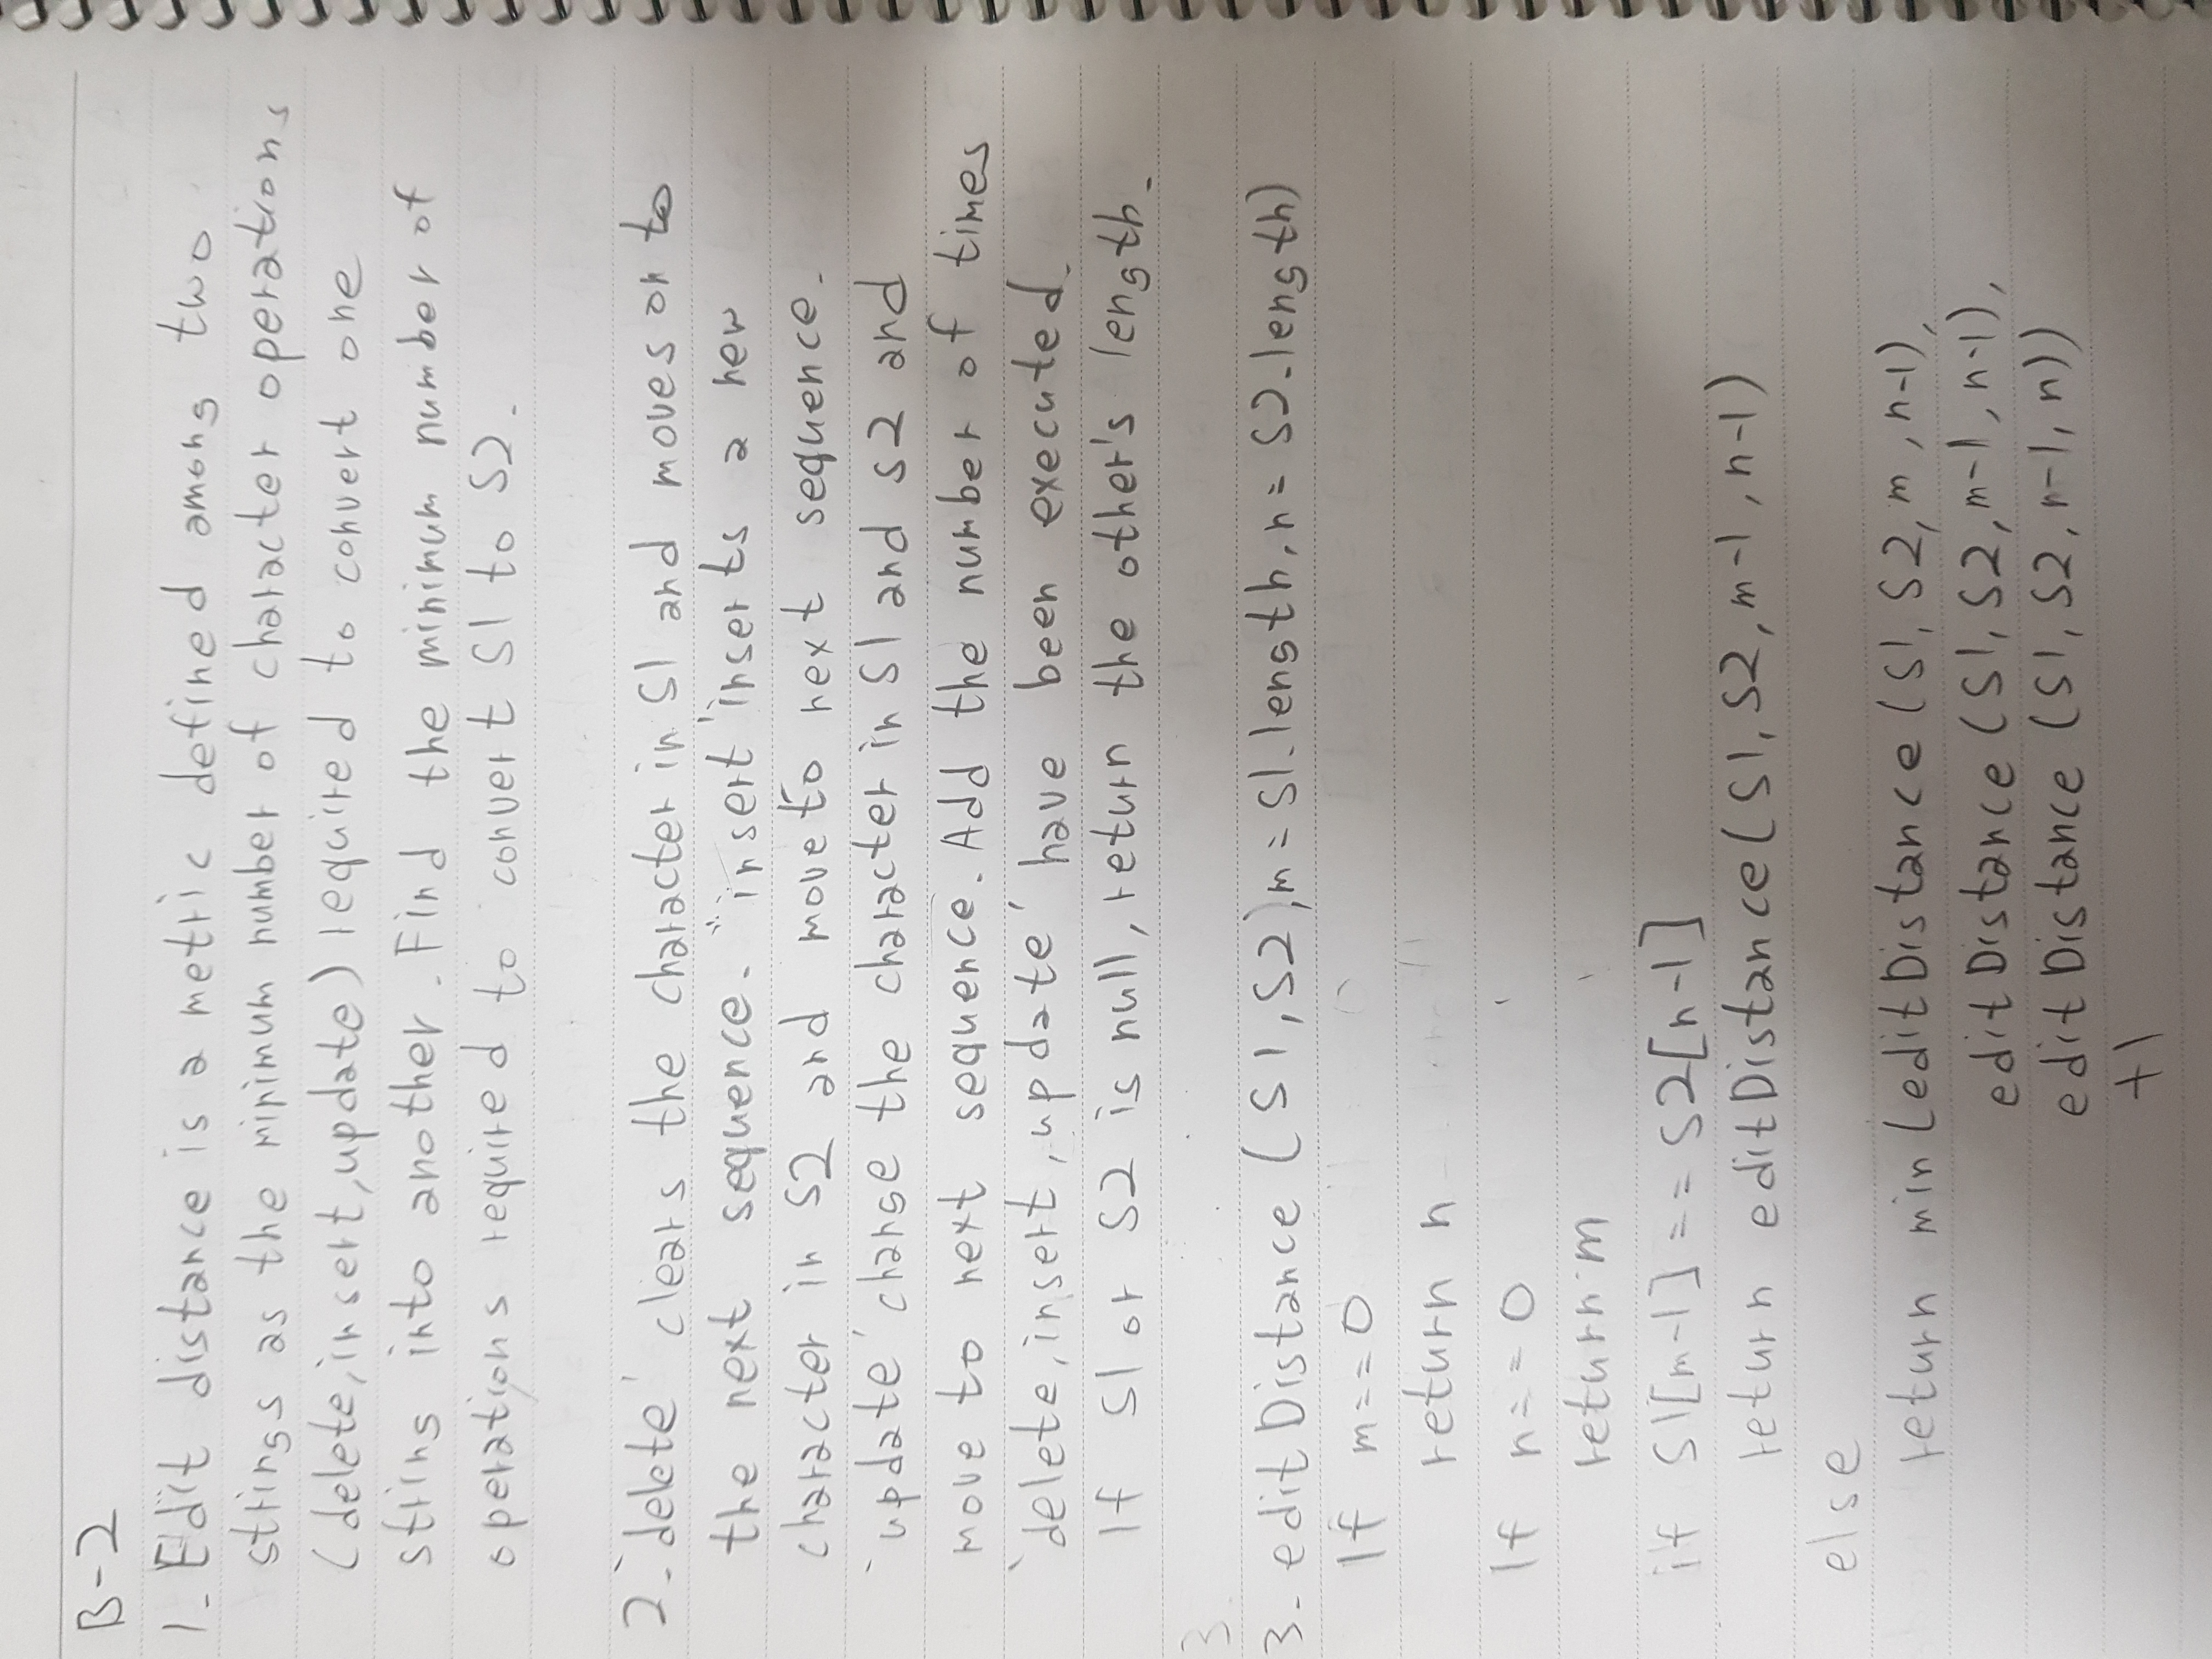 B-2
1. Edit distance is a metric defined among two
strings as the minimum number of character operations
(delete, insert, update) required to convert one
string into another. Find the minimum number of
operations required to convert S1 to S2.
2. `delete' clears the character in S1 and moves on to
the next sequence. `insert' inserts a new
character in S2 and move to next sequence.
`update' change the character in S1 and S2 and
move to next sequence. Add the number of times
`delete, insert, update' have been executed.
If S1 or S2 is null, return the other's length.
3.
3. editDistance (S1, S2), m = S1.length, n = S2.length)
If m==0
return n
If n==0
return m
if S1[m-1] == S2[n-1]
return editDistance(S1, S2, m-1, n-1)
else
return min (editDistance (S1, S2, m, n-1),
editDistance (S1, S2, m-1, n-1),
editDistance (S1, S2, n-1, n))
+1